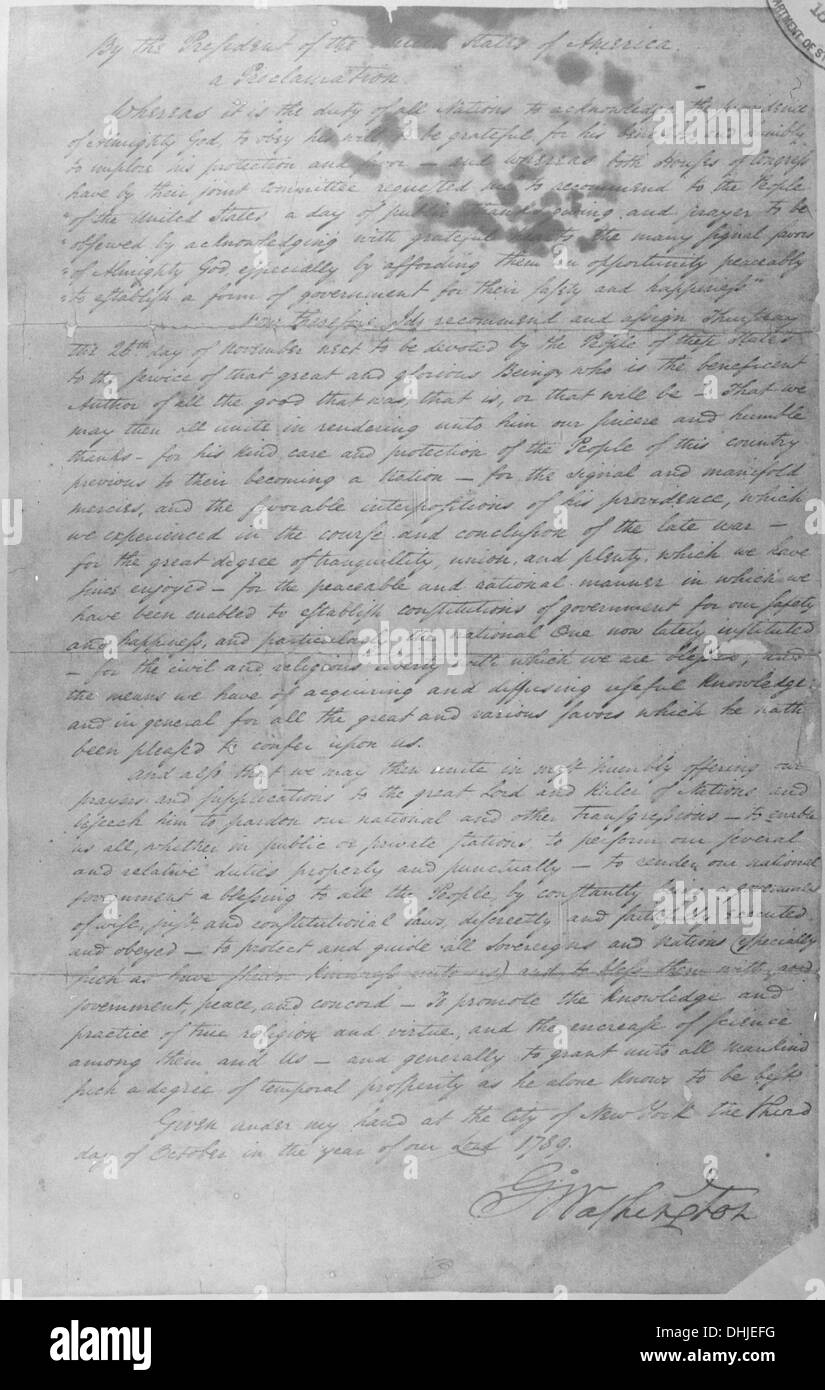 By the President of the United States of America.
a Proclamation.
Whereas it is the duty of all Nations to acknowledge the providence
of Almighty God, to obey his will, to be grateful for his benefits, and humbly
to implore his protection and favor – and whereas both Houses of Congress
have by their joint committee requested me to recommend to the People
"of the United States a day of public thanksgiving and prayer to be
"offered by acknowledging with grateful hearts the many signal favors
"of Almighty God, especially by affording them an opportunity peaceably
"to establish a form of government for their safety and happiness"
Now Therefore I do recommend and assign Thursday
the 26th day of November next to be devoted by the People of these States
to the service of that great and glorious Being, who is the beneficent
Author of all the good that was, that is, or that will be – That we
may then all unite in rendering unto him our sincere and humble
thanks – for his kind care and protection of the People of this country
previous to their becoming a Nation – for the signal and manifold
mercies, and the favorable interpositions of his providence, which
we experienced in the course and conclusion of the late war –
for the great degree of tranquillity, union, and plenty, which we have
since enjoyed – for the peaceable and rational manner in which we
have been enabled to establish constitutions of government for our safety
and happiness, and particularly the national One now lately instituted
– for the civil and religious liberty with which we are blessed, and
the means we have of acquiring and diffusing useful knowledge
and in general for all the great and various favors which he hath
been pleased to confer upon us.
And also that we may then unite in most humbly offering our
prayers and supplications to the great Lord and Ruler of Nations and
beseech him to pardon our national and other transgressions – to enable
us all, whether in public or private stations, to perform our several
and relative duties properly and punctually – to render our national
government a blessing to all the People, by constantly being a government
of wise, just and constitutional laws, discreetly and faithfully executed
and obeyed – to protect and guide all Sovereigns and Nations (especially
such as have shown kindness unto us) and to bless them with good
government, peace, and concord – To promote the knowledge and
practice of true religion and virtue, and the encrease of science
among them and Us – and generally to grant unto all mankind
such a degree of temporal prosperity as he alone knows to be best.
Given under my hand at the City of New York the third
day of October in the year of our Lord 1789.
G. Washington
alamy
www.alamy.com
Image ID: DHJEFG